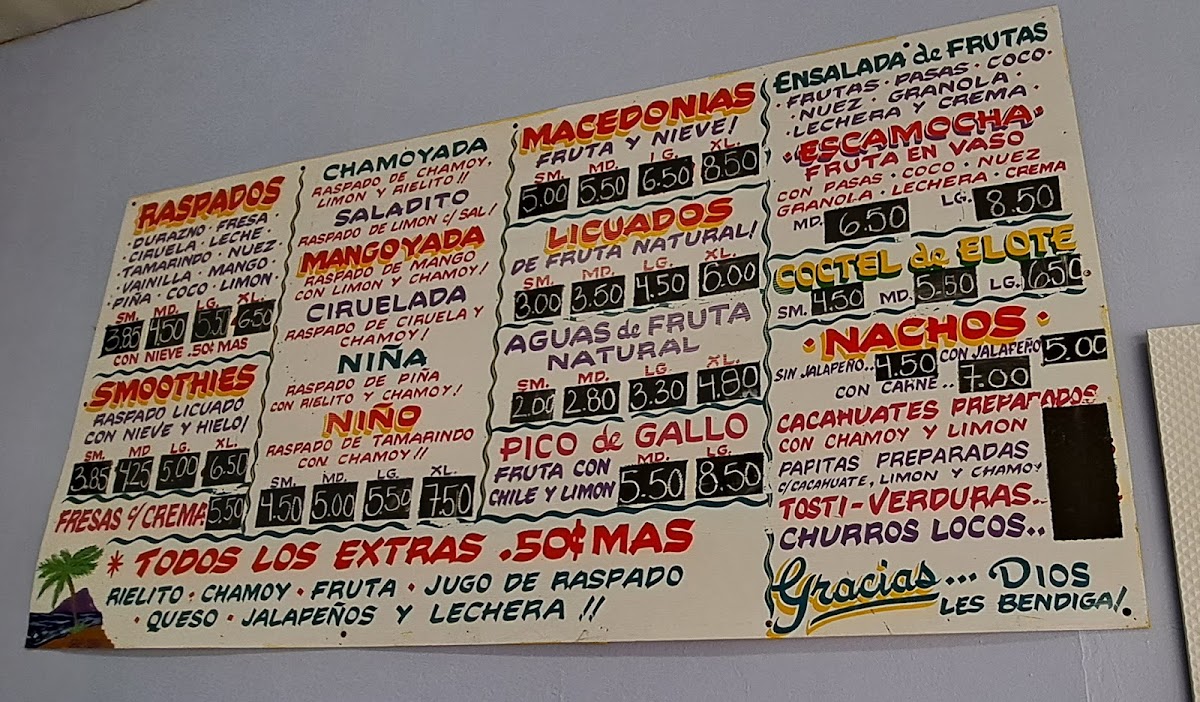 RASPADOS
· DURAZNO · FRESA ·
CIRUELA · LECHE ·
· TAMARINDO · NUEZ ·
· VAINILLA · MANGO ·
· PIÑA · COCO · LIMON ·
SM. MD. LG. XL.
3.85 4.50 5.51 6.50
CON NIEVE .50¢ MAS
SMOOTHIES
RASPADO LICUADO
CON NIEVE Y HIELO!
SM. MD. LG. XL.
3.85 4.25 5.00 6.50
FRESAS c/ CREMA 5.50
CHAMOYADA
RASPADO DE CHAMOY,
LIMON Y RIELITO!!
SALADITO
RASPADO DE LIMON c/ SAL!
MANGOYADA
RASPADO DE MANGO
CON LIMON Y CHAMOY!
CIRUELADA
RASPADO DE CIRUELA Y
CHAMOY!
NIÑA
RASPADO DE PIÑA
CON RIELITO Y CHAMOY!
NIÑO
RASPADO DE TAMARINDO
CON CHAMOY!!
SM. MD. LG. XL.
4.50 5.00 5.50 7.50
MACEDONIAS
FRUTA Y NIEVE!
SM. MD. LG. XL.
5.00 5.50 6.50 8.50
LICUADOS
DE FRUTA NATURAL!
SM. MD. LG. XL.
3.00 3.50 4.50 6.00
AGUAS de FRUTA
NATURAL
SM. MD. LG. XL.
2.00 2.80 3.30 4.80
PICO de GALLO
FRUTA CON MD. LG.
CHILE Y LIMON 5.50 8.50
ENSALADA de FRUTAS
· FRUTAS · PASAS · COCO ·
· NUEZ · GRANOLA ·
LECHERA Y CREMA ·
· ESCAMOCHA ·
FRUTA EN VASO
CON PASAS · COCO · NUEZ
GRANOLA · LECHERA · CREMA
MD. 6.50 LG. 8.50
COCTEL de ELOTE
SM. 4.50 MD. 5.50 LG. 6.50
· NACHOS ·
SIN JALAPEÑO.. 4.50 CON JALAPEÑO 5.00
CON CARNE.. 7.00
CACAHUATES PREPARADOS
CON CHAMOY Y LIMON
PAPITAS PREPARADAS
c/CACAHUATE, LIMON Y CHAMOY
TOSTI-VERDURAS..
CHURROS LOCOS..
* TODOS LOS EXTRAS .50¢ MAS
RIELITO · CHAMOY · FRUTA · JUGO DE RASPADO
· QUESO · JALAPEÑOS Y LECHERA !!
Gracias... DIOS
LES BENDIGA!